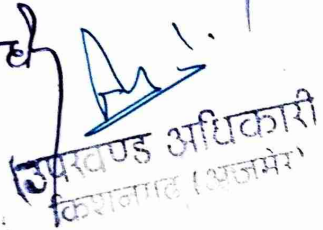 (उपखण्ड अधिकारी
किशनगढ (अजमेर)